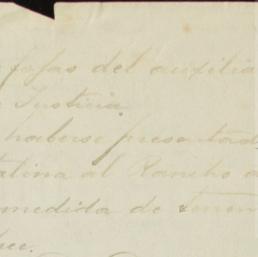 fojas del auxilia
Justicia
haberse presentad
talina al Rancho d
medida de terren